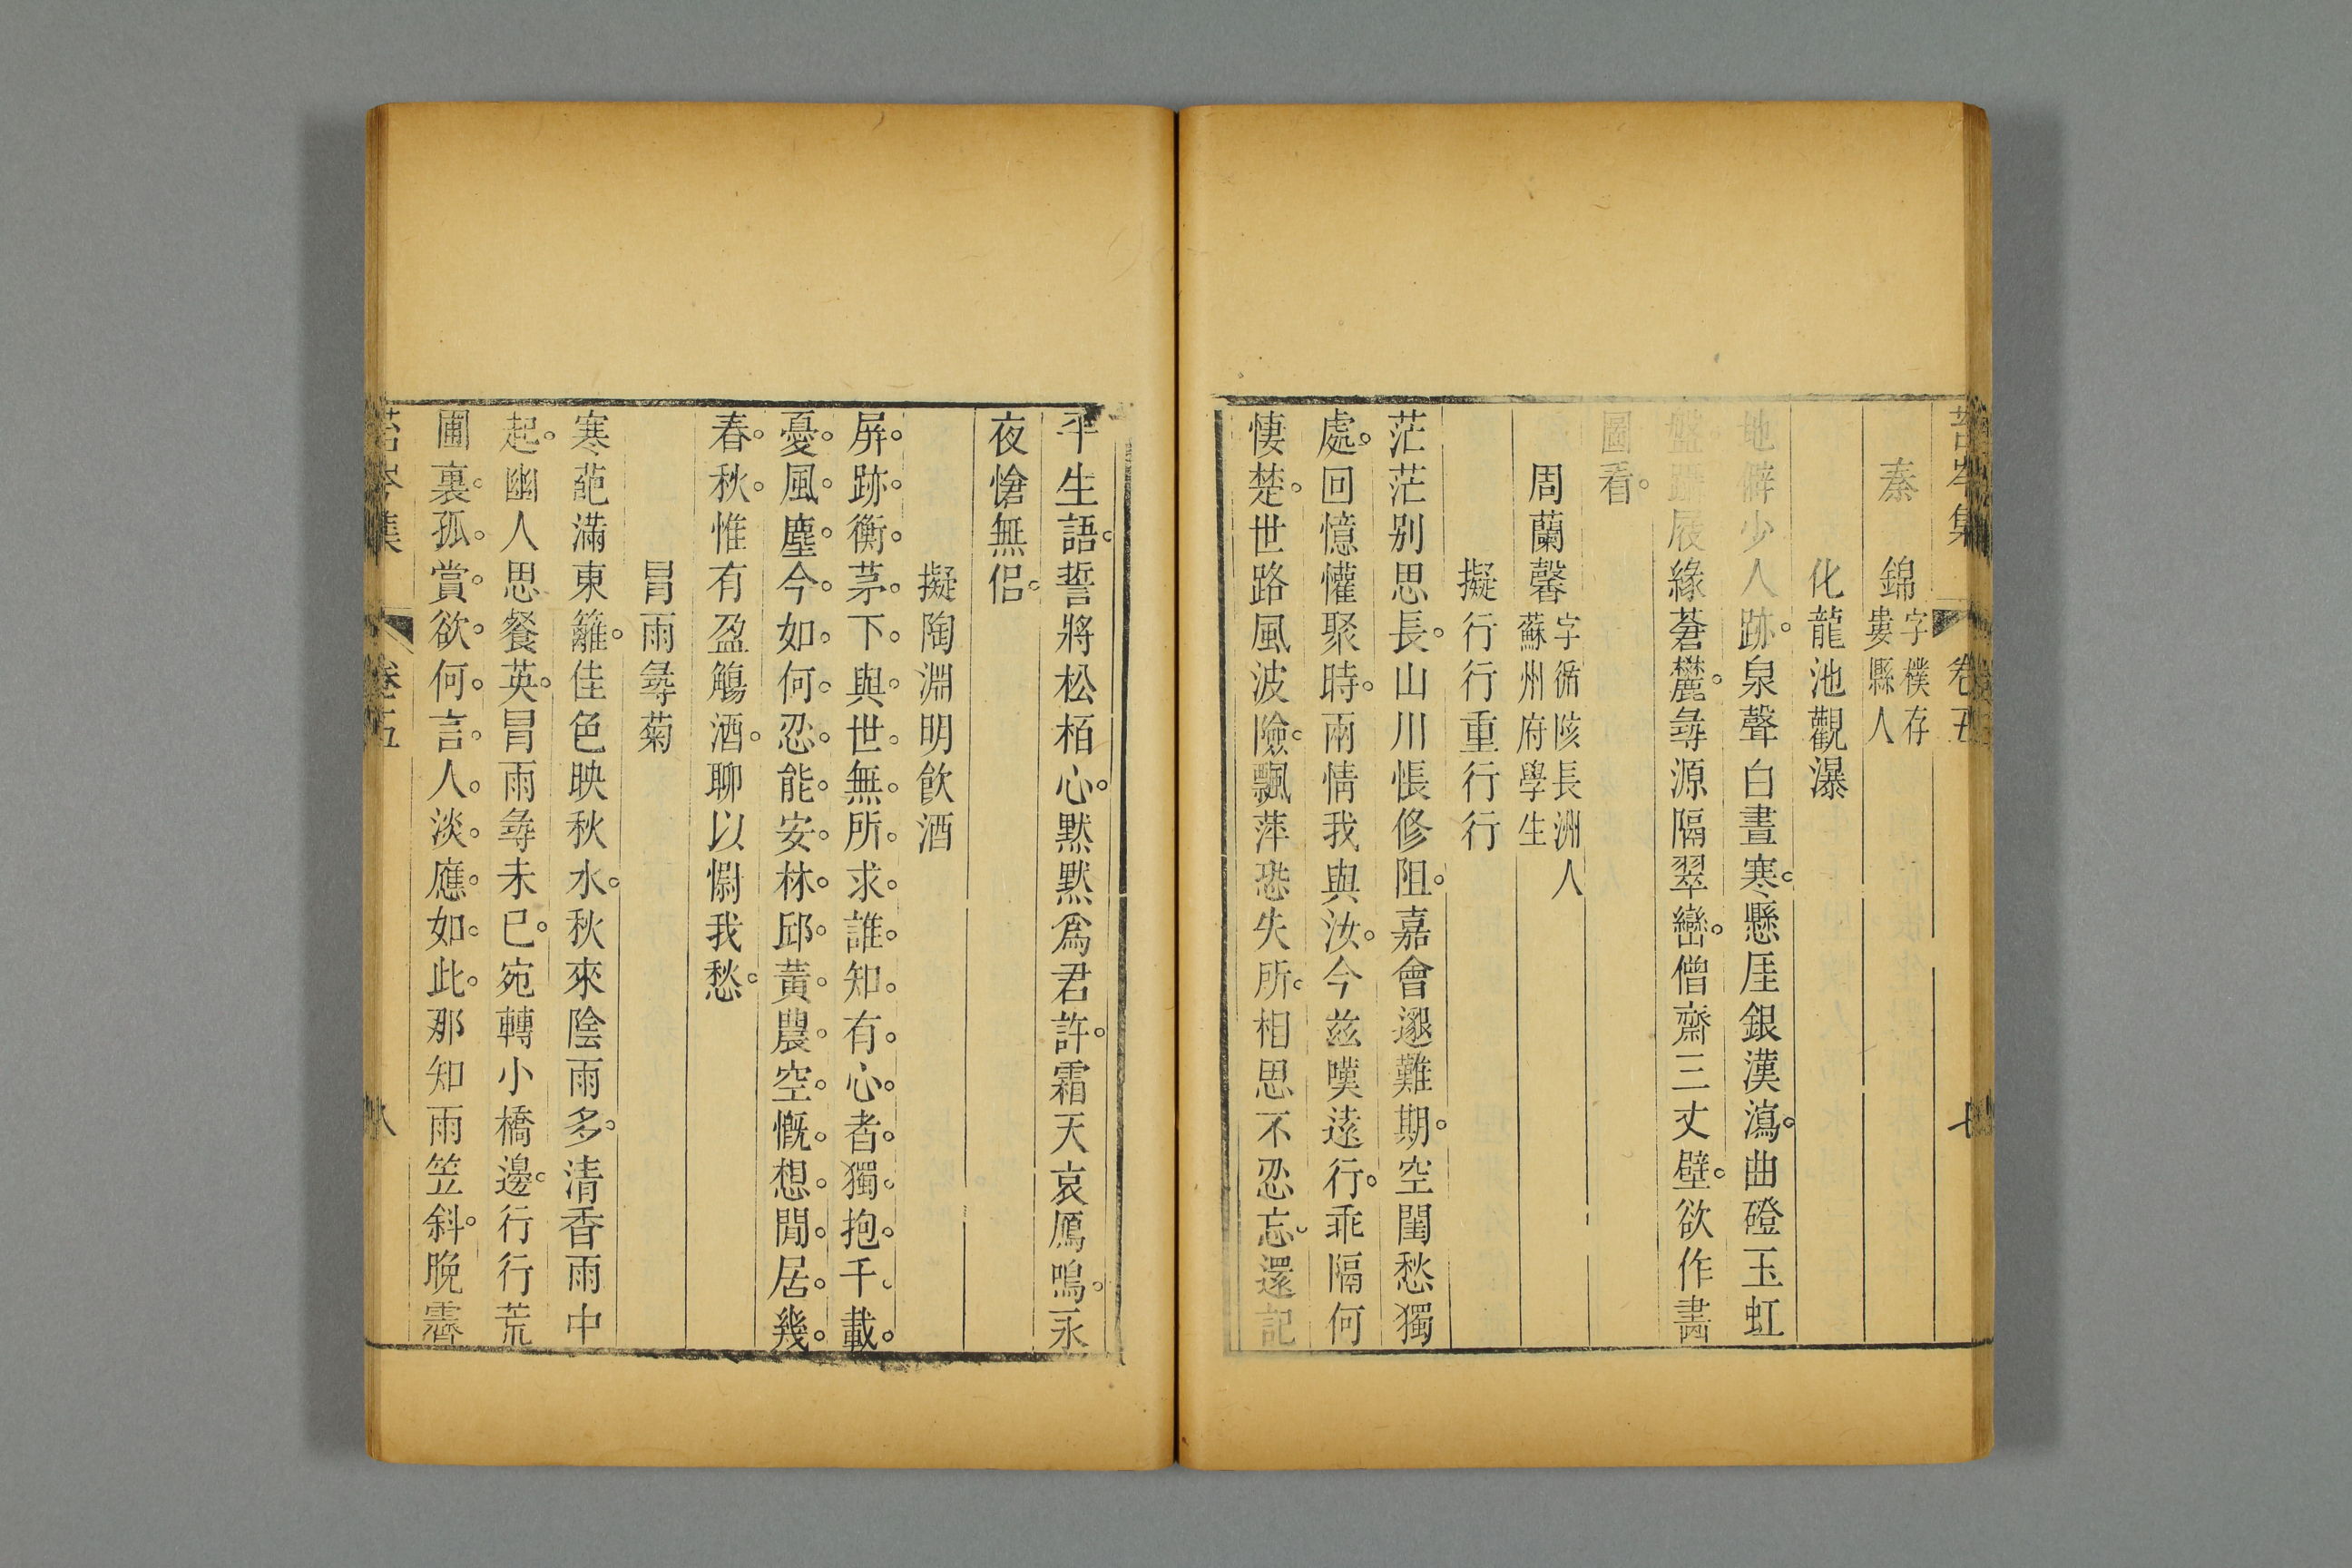 苔岑集 卷五 七
秦 錦 字樸存 婁縣人
化龍池觀瀑
地僻少人跡。泉聲白晝寒。懸厓銀漢瀉。曲磴玉虹
盤。躡屐緣蒼麓。㝷源隔翠巒。僧齋三丈壁。欲作畵
圖看。
周蘭馨 字循陔長洲人 蘇州府學生
擬行行重行行
茫茫别思長。山川悵修阻。嘉會邈難期。空閨愁獨
處。回憶懽聚時。兩情我與汝。今兹嘆遠行。乖隔何
悽楚。世路風波險。飄萍恐失所。相思不忍忘。還記
平生語。誓將松栢心。默默爲君許。霜天哀鴈鳴。永
夜愴無侣。
擬陶淵明飲酒
屏跡衡茅下。與世無所求。誰知有心者。獨抱千載
憂。風塵今如何。忍能安林邱。黃農空慨想。閒居幾
春秋。惟有盈觴酒。聊以慰我愁。
冒雨㝷菊
寒葩滿東籬。佳色映秋水。秋來陰雨多。清香雨中
起。幽人思餐英。冒雨㝷未已。宛轉小橋邊。行行荒
圃裏。孤賞欲何言。人淡應如此。那知雨笠斜。晚霽
苔岑集 卷五 八